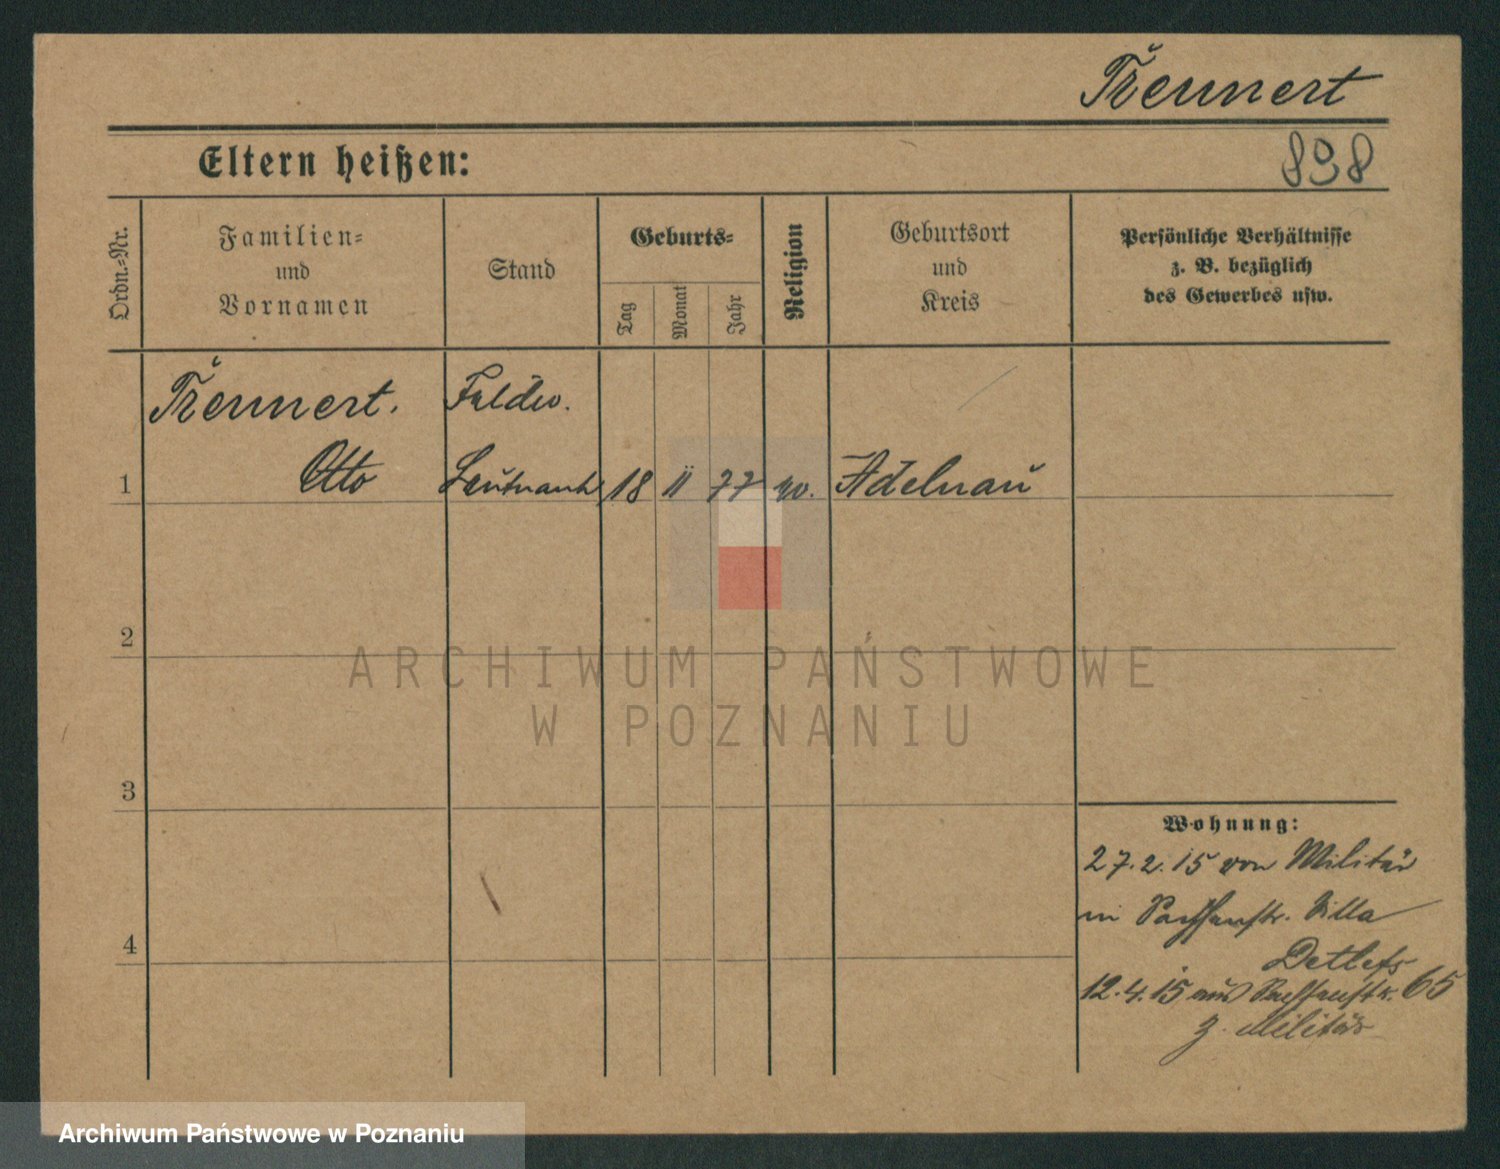 Trennert
898
Eltern heißen:
Ordn.-Nr.
Familien-
und
Vornamen
Stand
Geburts-
Tag
Monat
Jahr
Religion
Geburtsort
und
Kreis
Persönliche Verhältnisse
z. B. bezüglich
des Gewerbes usw.
Trennert.
Feldw.
1
Otto
Leutnant
18
11
77
Adelnau
2
3
4
ARCHIWUM PAŃSTWOWE
W POZNANIU
Wohnung:
27.2.15 von Militär
in Sachsenstr. Villa
Detlefs
12.4.15 aus Sachsenstr. 65
z. Militär
Archiwum Państwowe w Poznaniu